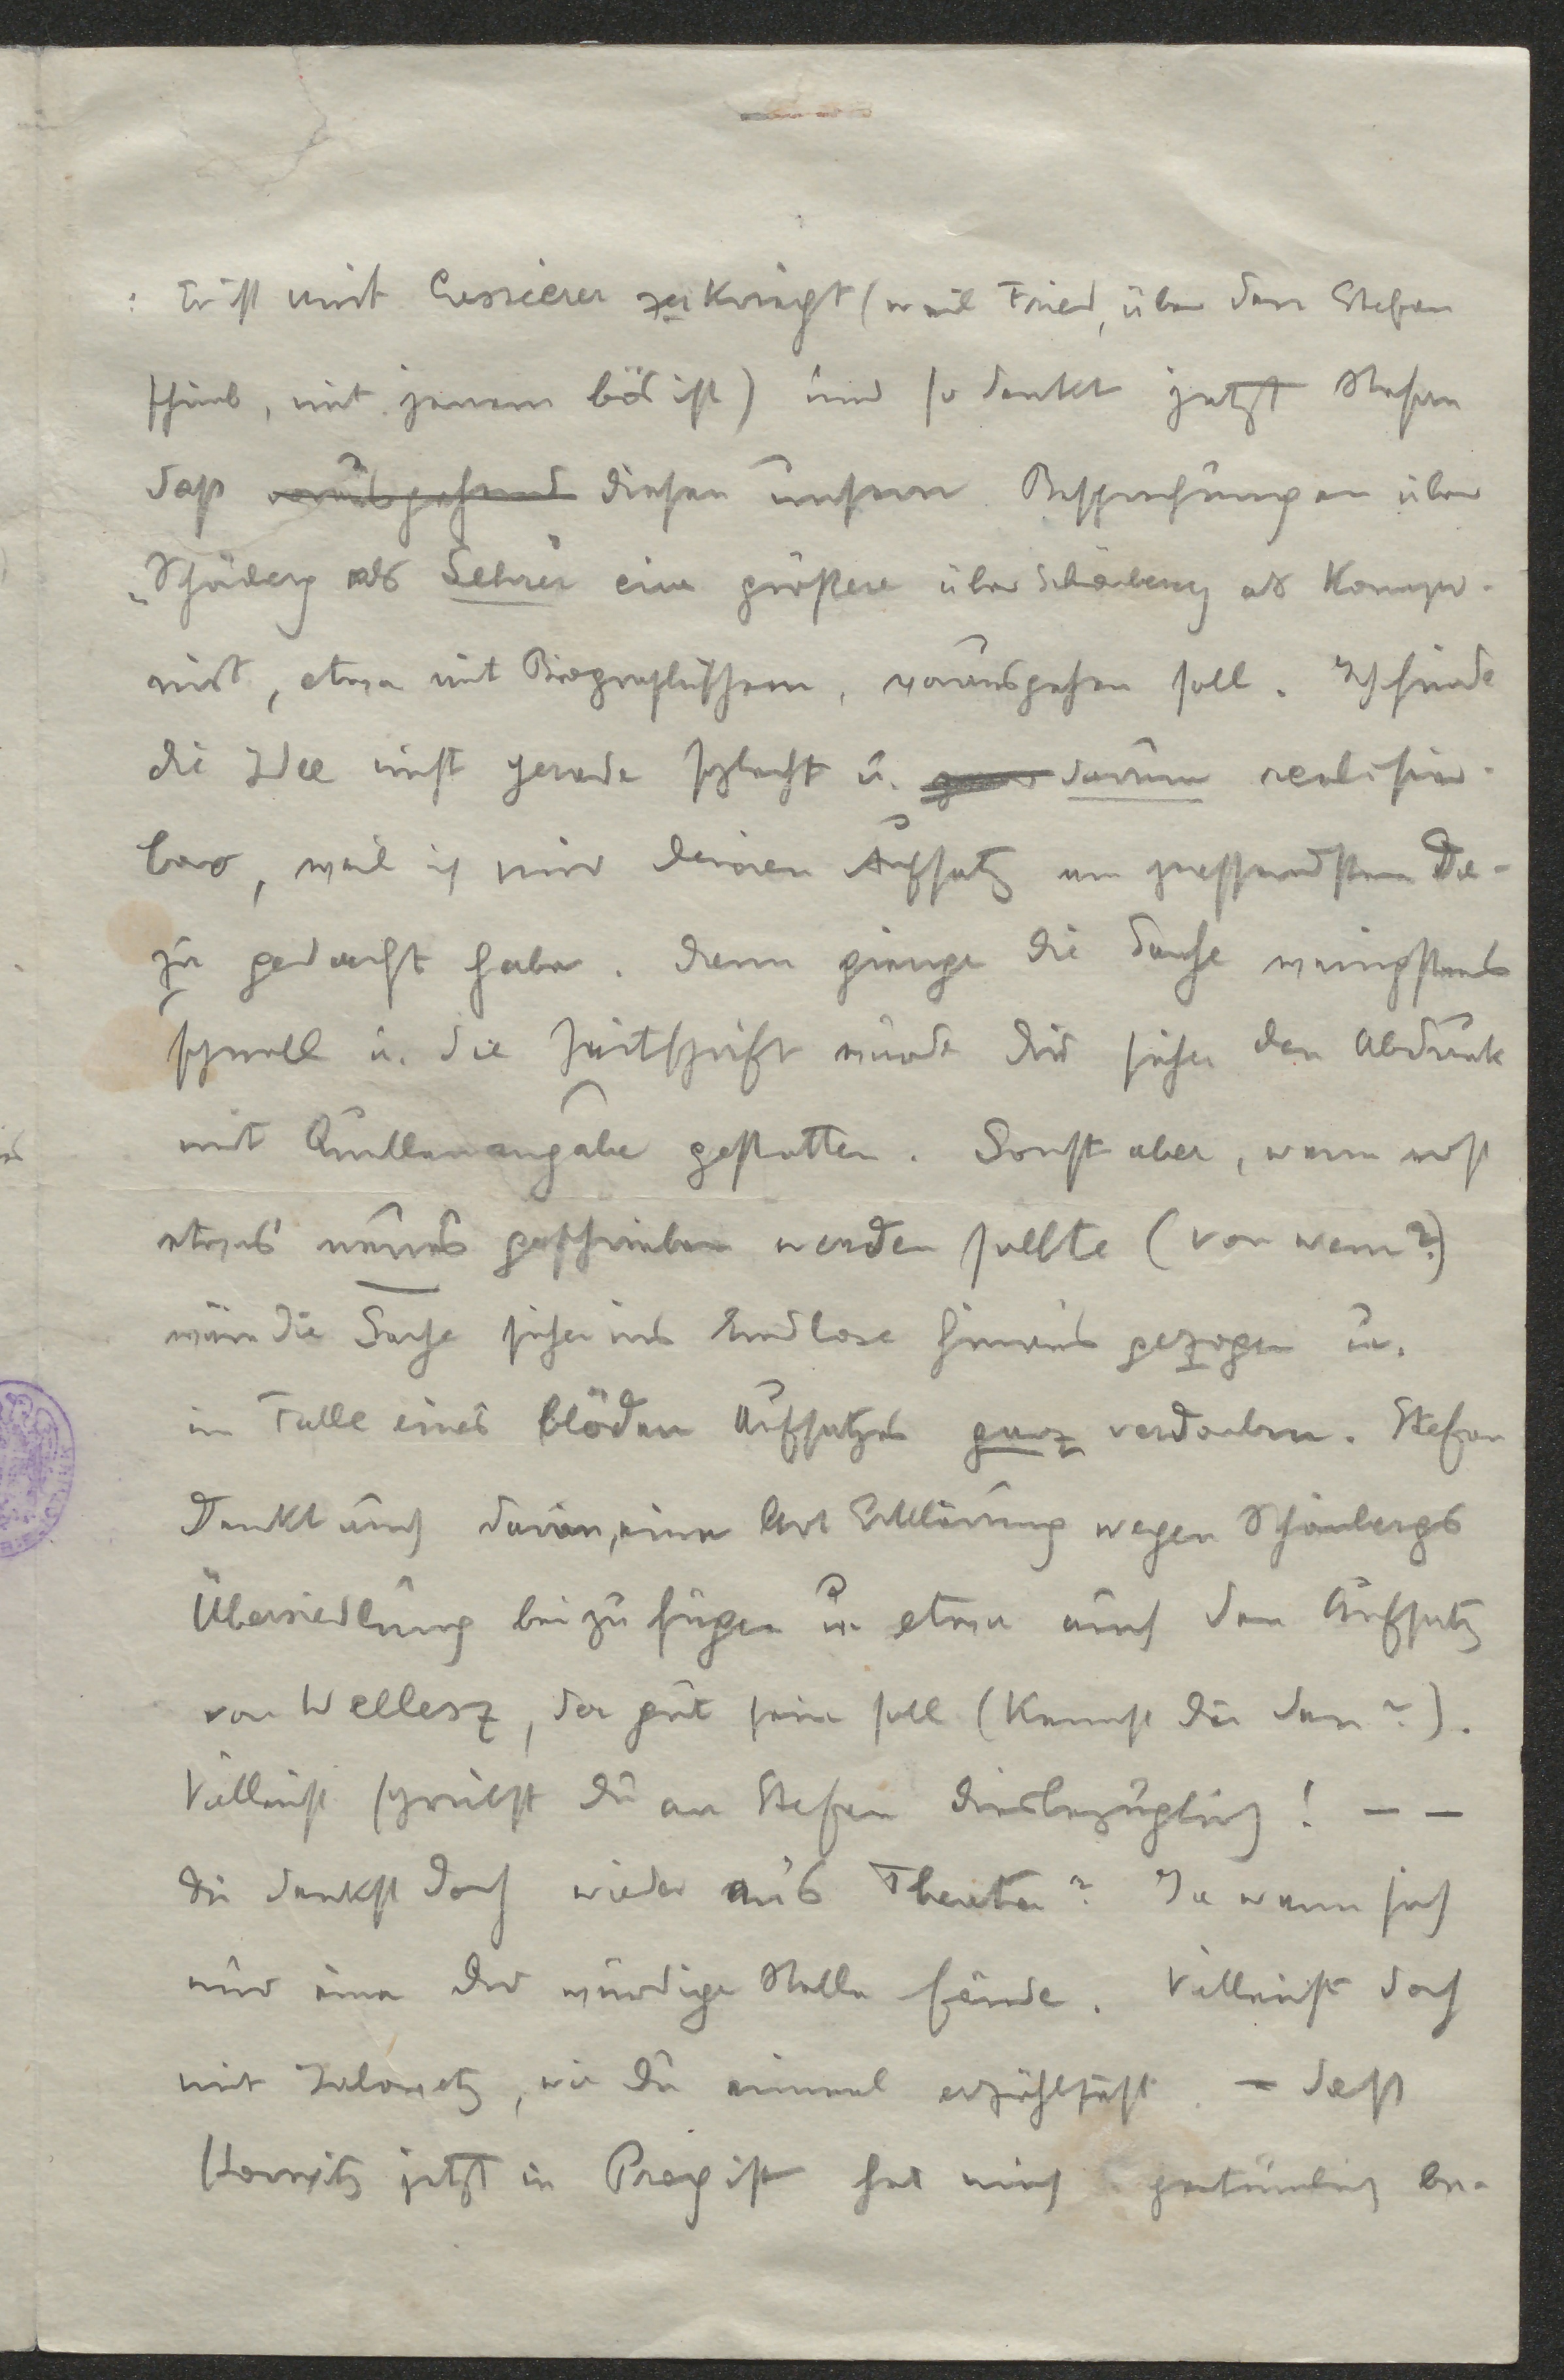 : Er ist mit Cassierer zerkriegt (weil Fried, über den Stefan
schrieb, mit jenem bös ist) und so denkt jetzt Stefan
dass vorübergehend diesen unseren Besprechungen über
„Schönberg als Lehrer eine größere über Schönberg als Kompo-
nist, etwa mit Biographischem, vorausgehen soll. Ich finde
die Idee nicht gerade schlecht u. darum realisier-
bar, weil ich mir deinen Aufsatz am passendsten da-
zu gedacht habe. Dann gienge die Sache wenigstens
schnell u. die Zeitschrift würde dir sicher den Abdruck
mit Quellenangabe gestatten. Sonst aber, wenn erst
etwas neues geschrieben werden sollte (von wem?)
wär die Sache sicher ins Endlose hinaus gezogen u.
im Falle eines blöden Aufsatzes ganz verdorben. Stefan
denkt auch daran, eine Art Erklärung wegen Schönbergs
Übersiedlung beizufügen u. etwa auch den Aufsatz
von Wellesz, der gut sein soll (Kennst du den?).
Vielleicht schreibst du an Stefan diesbezüglich! – –
Du denkst doch wieder an's Theater? Ja wenn sich
nur eine dir würdige Stelle fände. Vielleicht doch
mit Jalowetz, wie du einmal erzähltest. – dass
Horwitz jetzt in Prag ist hat mich be-